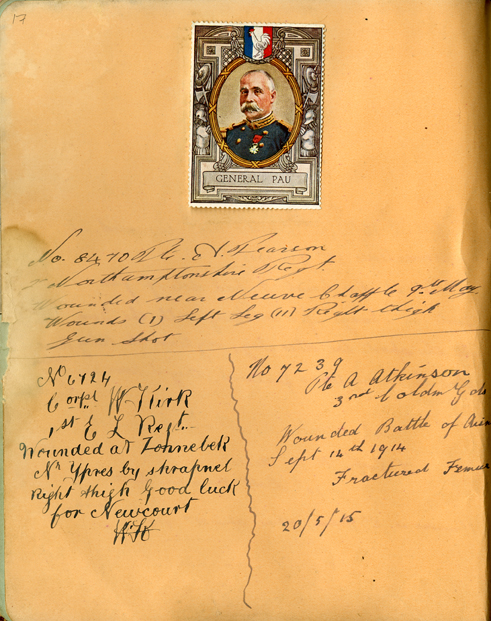 17
GENERAL PAU
No. 8470 Pte. E. Pearson
Northamptonshire Regt.
Wounded near Neuve Chapple 9th May
Wounds (I) Left Leg (II) Right thigh
Gun Shot
No 6724
Corpl W Kirk
1st E L Regt.
Wounded at Zonnebek
Nr Ypres by shrapnel
Right thigh Good luck
for Newcourt
WK
No 7239
Pte A Atkinson
3rd Coldm Gds
Wounded Battle of
Sept 14th 1914
Fractured Femur
20/5/15